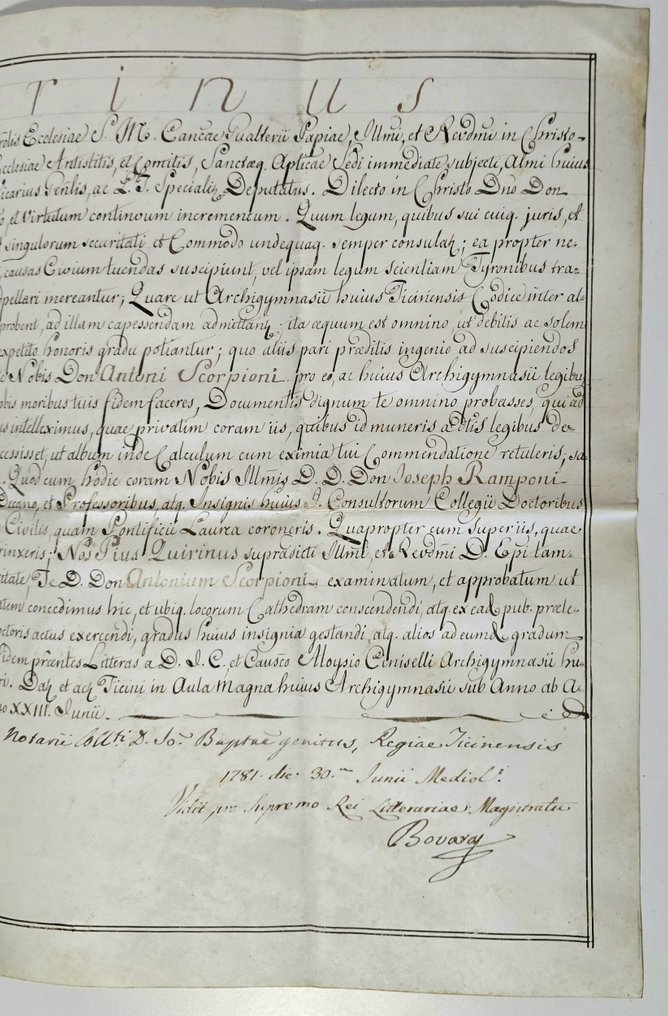 r i n u s
Ecclesiae S. M. Cancae Gualterii Papiae, Illmi, et Revdmi in Christo
Ecclesiae Antistitis, et Comitis, Sanctaeq. Aplicae Sedi immediate subjecti, Almi huius
icarius Gnlis, ac L. T. Specialr. Deputatus. Dilecto in Christo Dno Don
o, et Virtutum continuum incrementum. Quum legum, quibus sui cuiq. juris, et
singulorum securitati et Commodo undequaq. semper consulatr; ea propter ne-
causas Civium tuendas suscipiunt, vel ipsam legum scientiam Tyronibus tra-
pellari mereantur; Quare ut Archigymnasii huius Ticinensis Codice inter al-
probent, ad illam capessendam admittantr. ita aequum est omnino, ut debitis ac solem
expetito honoris gradu potiantur; quo aliis pari praeditis ingenio ad suscipiendos
Nobis Don Antoni Scorpioni pro eo, ac huius Archigymnasii legibus
obis moribus tuis fidem faceres, Documentis dignum te omnino probasses, qui ad
us intelleximus, quae privatim coram iis, quibus id muneris a dtis legibus de-
cessisset, ut album inde Calculum cum eximia tui Commendatione retuleris, sa
. Quod cum hodie coram Nobis Illmis D. D. Don Joseph Ramponi
Decano, et Professoribus, atq. Insignis huius J. Consultorum Collegii Doctoribus
Civilis, quam Pontificii Laurea coroneris. Quapropter cum superiis, quae
rinxeris; Nos Pius Quirinus supradicti Illmi, et Revdmi D. Epi tam-
itate, Te D. Don Antonium Scorpioni, examinatum, et approbatum ut
tem concedimus hic, et ubiq. locorum Cathedram conscendendi, atq. ex ead. pub. praele-
ctoris actus exercendi, gradus huius insignia gestandi, atq. alios ad eumd. gradum
fidem prntes Litteras a D. J. C. et Causco Aloysio Ceniselli Archigymnasii hu-
ri. Datr et actr Ticini in Aula Magna huius Archigymnasii sub Anno ab A-
XXIII. Junii.
Notarii Collti D. Jo. Baptae genitus, Regiae Ticinensis
1781. die 30. Junii Mediol.
Vidit pro Supremo Rei Litterariae Magistratu
Bovara